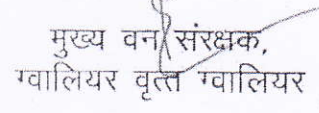 मुख्य वन संरक्षक,
ग्वालियर वृत्त ग्वालियर